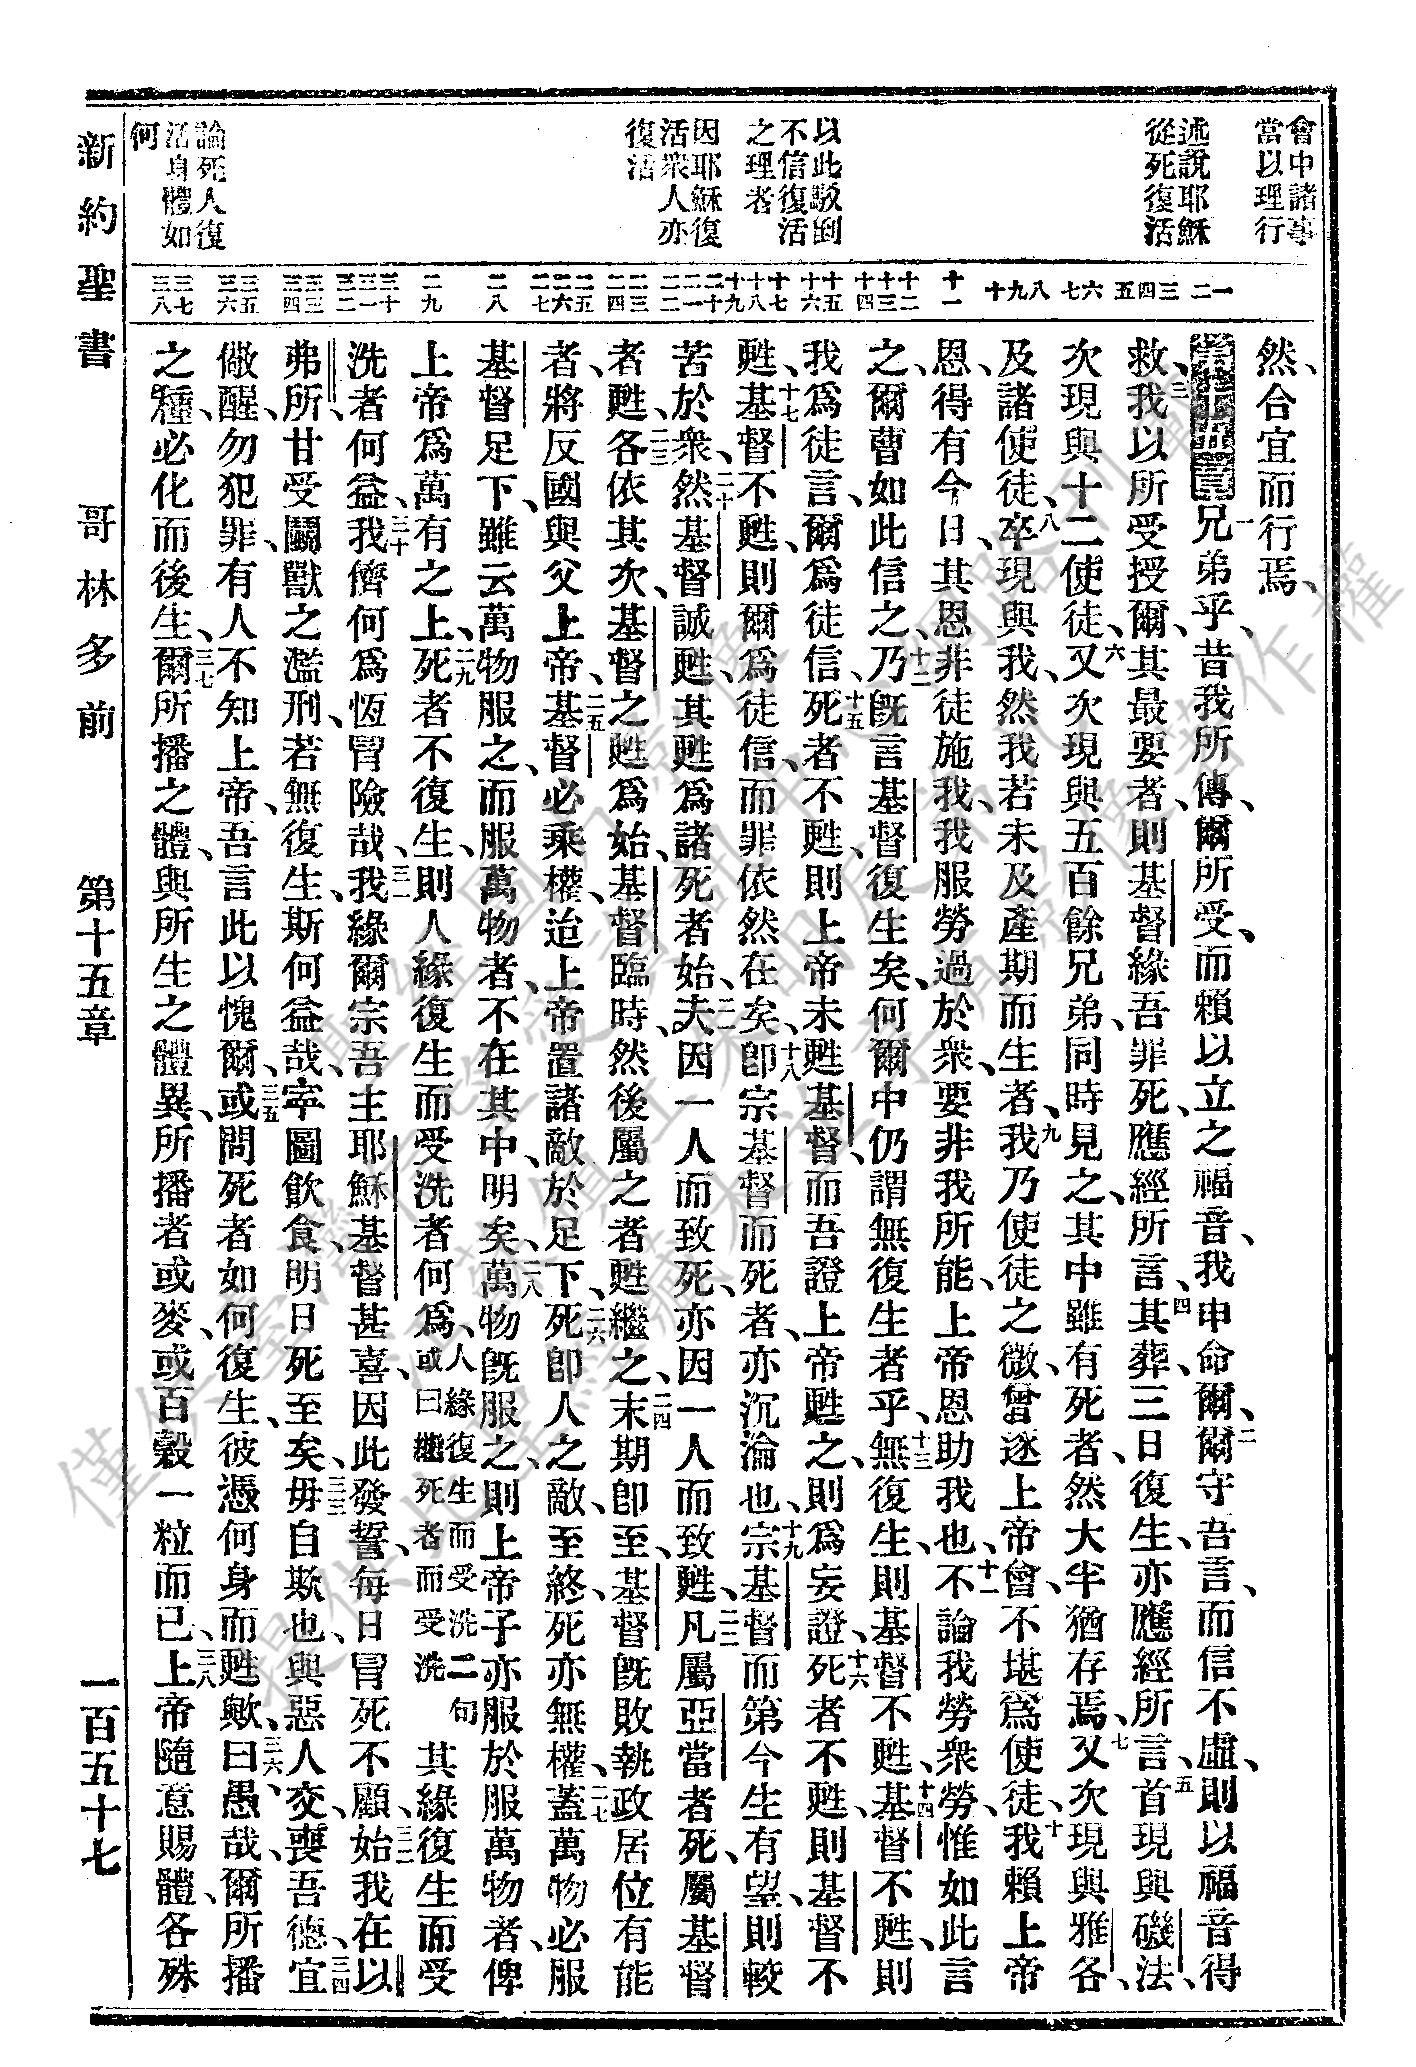 會中諸事
當以理行
述說耶穌
從死復活
以此駁倒
不信復活
之理者
因耶穌復
活衆人亦
復活
論死人復
活身體如
何
一 二 三 四 五 六 七 八 九 十 十一 十二 十三 十四 十五 十六 十七 十八 十九 二十 二一 二二 二三 二四 二五 二六 二七 二八 二九 三十 三一 三二 三三 三四 三五 三六 三七 三八
然、合宜而行焉、
第十五章 一兄弟乎、昔我所傳、爾所受、而賴以立之福音、我申命爾、二爾守吾言、而信不虛、則以福音得
救、三我以所受授爾、其最要者、則基督緣吾罪死、應經所言、四其葬、三日復生、亦應經所言、五首現與磯法、
次現與十二使徒、六又次現與五百餘兄弟、同時見之、其中雖有死者、然大半猶存焉、七又次現與雅各、
及諸使徒、八卒現與我、然我若未及產期而生者、九我乃使徒之微、曾逐上帝會、不堪爲使徒、十我賴上帝
恩、得有今日、其恩非徒施我、我服勞過於衆、要非我所能、上帝恩助我也、十一不論我勞衆勞、惟如此言
之、爾曹如此信之、十二乃旣言基督復生矣、何爾中仍謂無復生者乎、十三無復生、則基督不甦、十四基督不甦、則
我爲徒言、爾爲徒信、十五死者不甦、則上帝未甦基督、而吾證上帝甦之、則爲妄證、十六死者不甦、則基督不
甦、十七基督不甦、則爾爲徒信、而罪依然在矣、十八卽宗基督而死者、亦沉淪也、十九宗基督而第今生有望、則較
苦於衆、二十然基督誠甦、其甦爲諸死者始、二一夫因一人而致死、亦因一人而致甦、二二凡屬亞當者死、屬基督
者甦、二三各依其次、基督之甦爲始、基督臨時、然後屬之者甦繼之、二四末期卽至、基督旣敗執政居位有能
者、將反國與父上帝、二五基督必乘權、迨上帝置諸敵於足下、二六死卽人之敵、至終、死亦無權、二七蓋萬物必服
基督足下、雖云萬物服之、而服萬物者、不在其中明矣、二八萬物旣服之、則上帝子亦服於服萬物者、俾
上帝爲萬有之上、二九死者不復生、則人緣復生而受洗者何爲、人緣復生而受洗二句或曰繼死者而受洗其緣復生而受
洗者何益、三十我儕何爲恆冒險哉、三一我緣爾宗吾主耶穌基督甚喜、因此發誓、每日冒死不顧、三二始我在以
弗所、甘受鬭獸之濫刑、若無復生、斯何益哉、寧圖飲食、明日死至矣、三三毋自欺也、與惡人交、喪吾德、三四宜
儆醒、勿犯罪、有人不知上帝、吾言此以愧爾、三五或問死者如何復生、彼憑何身而甦歟、三六曰愚哉、爾所播
之種、必化而後生、三七爾所播之體、與所生之體異、所播者或麥、或百穀一粒而已、三八上帝隨意賜體、各殊
新約聖書 哥林多前 第十五章 一百五十七